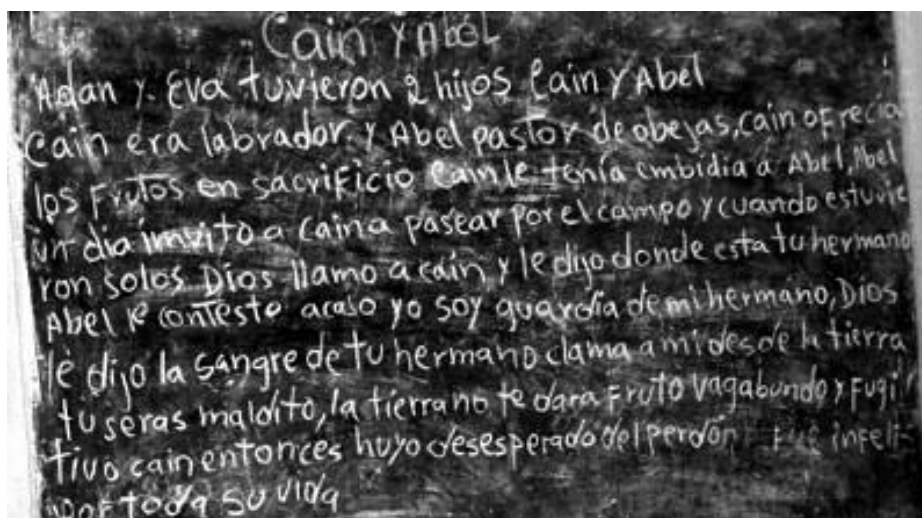 Cain y Abel
Adan y Eva tuvieron 2 hijos Cain y Abel
Cain era labrador y Abel pastor de obejas, cain ofrecia
los Frutos en sacrificio Cain le tenía embidia a Abel, Abel
un dia invito a Cain a pasear por el campo y cuando estuvie
ron solos Dios llamo a cain y le dijo donde esta tu hermano
Abel le contesto acaso yo soy guardia de mi hermano, Dios
le dijo la sangre de tu hermano clama a mi desde la tierra
tu seras maldito, la tierra no te dara Fruto vagabundo y Fugi
tivo cain entonces huyo desesperado del perdón Fue infeli
por toda su vida